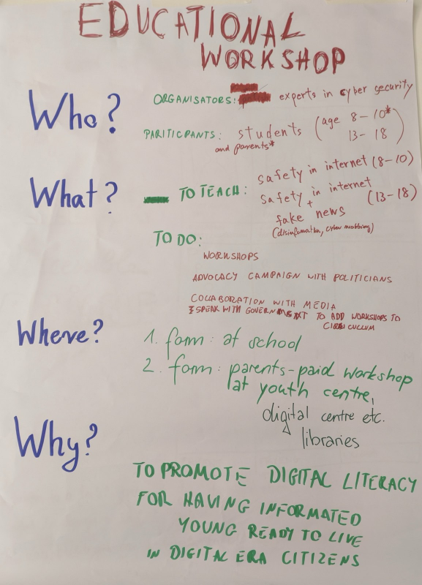 EDUCATIONAL
WORKSHOP
Who?
ORGANISATORS: experts in cyber security
PARITICPANTS: students (age 8-10*
and parents* 13-18)
What?
TO TEACH: safety in internet (8-10)
safety in internet
+
fake news (13-18)
(disinformation, cyber mobbing)
TO DO:
WORKSHOPS
ADVOCACY CAMPAIGN WITH POLITICIANS
COLLABORATION WITH MEDIA
SPEAK WITH GOVERNMENT TO ADD WORKSHOPS TO
Where?
1. form: at school
2. form: parents-paid workshop
at youth centre,
digital centre etc.
libraries
Why?
TO PROMOTE DIGITAL LITERACY
FOR HAVING INFORMATED
YOUNG READY TO LIVE
IN DIGITAL ERA CITIZENS